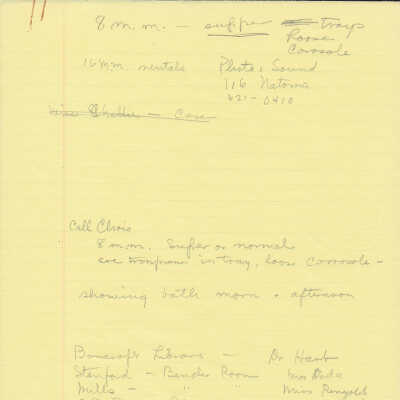 8 m.m. — super trays
Loose
Carosole
16 m.m. rentals Photo & Sound
116 Natoma
421-0410
Miss Shaffer — Case
Call Chris
8 m.m. Super or normal
in tray, loose Carosole —
showing both morn & afternoon
Bancroft Library — Dr Hart
Stanford — Bender Room Miss Dada
Mills — " Miss Reynolds